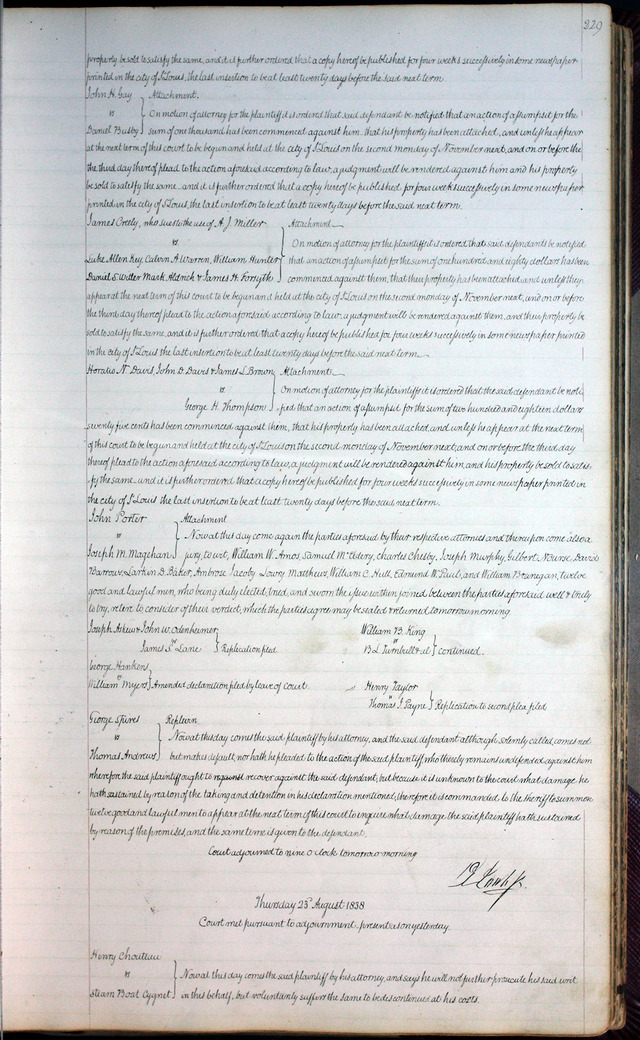 229
property be sold to satisfy the same, and it is further ordered that a copy hereof be published for four weeks successively in some newspaper
printed in the city of St Louis, the last insertion to be at least twenty days before the said next term.
John H. Gay } Attachment.
vs On motion of attorney for the plaintiff it is ordered that said defendant be notified that an action of assumpsit for the
Daniel Busby sum of one thousand has been commenced against him, that his property has been attached, and unless he appear
at the next term of this court to be begun and held at the city of St Louis on the second monday of November next, and on or before the
the third day thereof plead to the action aforesaid according to law, a judgment will be rendered against him and his property
be sold to satisfy the same. and it is further ordered that a copy hereof be published for four weeks successively in some newspaper
printed in the city of St Louis, the last insertion to be at least twenty days before the said next term.
James Creely, who sues to the use of A. J. Miller } Attachment
vs On motion of attorney for the plaintiff it is ordered that said defendants be notified
Luke Allen Key, Calvin A Warren, William Hunter that an action of assumpsit for the sum of one hundred and eighty dollars has been
Daniel S. Witter Mark Aldrick & James H. Forsyth commenced against them, that their property has been attached and unless they
appear at the next term of this court to be begun and held at the city of St Louis on the second monday of November next, and on or before
the third day thereof plead to the action aforesaid according to law, a judgment will be rendered against them, and their property be
sold to satisfy the same, and it is further ordered that a copy hereof be published for four weeks successively in some newspaper printed
in the city of St Louis the last insertion to be at least twenty days before the said next term
Horatio N. Davis, John D. Davis & James L. Brown } Attachment
vs On motion of attorney for the plaintiffs it is ordered that the said defendant be noti
George H. Thompson fied that an action of assumpsit for the sum of two hundred and eighteen dollars
twenty five cents has been commenced against them, that his property has been attached and unless he appear at the next term
of this court to be begun and held at the city of St Louis on the second monday of November next, and on or before the third day
thereof plead to the action aforesaid according to law, a judgment will be rendered against him, and his property be sold to satis-
fy the same. and it is further ordered that a copy hereof be published for four weeks successively in some newspaper printed in
the city of St Louis the last insertion to be at least twenty days before the said next term.
John Porter } Attachment
vs Now at this day come again the parties aforesaid by their respective attornies and thereupon come also a
Joseph M. Magehan jury, to wit, William W. Amos, Samuel McEldery, Charles Chesby, Joseph Murphy, Gilbert Nourse, David
Barrow, Larkin D. Baker, Ambrose Jacoby Lowry Matthews, William C. Hull, Edmund W. Paul, and William Branegan, twelve
good and lawful men, who being duly elected, tried, and sworn the issue within joined between the parties aforesaid well & truly
to try, retire to consider of their verdict, which the parties agree may be sealed & returned tomorrow morning
Joseph Askew & John W. Odenheimer
vs
James S. Lane } Replication filed
William B. King
vs
B. L. Turnbull & al } continued.
George Hankins
vs
William Myers } Amended declaration filed by leave of Court
Henry Taylor
vs
Thomas J. Payne } Replication to second plea filed
George Spires } Replevin
vs Now at this day comes the said plaintiff by his attorney, and the said defendant although solemly called, comes not
Thomas Andrews but makes default, nor hath he pleaded to the action of the said plaintiff who thereby remains undefended against him
wherefore the said plaintiff ought to recover against the said defendant; but because it is unknown to the court what damage he
hath sustained by reason of the taking and detention in his declaration mentioned; therefore it is commanded to the sheriff to summon
twelve good and lawful men to appear at the next term of this court to enquire what damage the said plaintiff hath sustained
by reason of the premises, and the same term is given to the defendant.
Court adjourned to nine O'clock tomorrow morning
Thursday 23d August 1838
Court met pursuant to adjournment, present as on yesterday
Henry Chouteau
vs } Now at this day comes the said plaintiff by his attorney, and says he will not further prosecute his said writ
Steam Boat Cygnet in this behalf, but voluntarily suffers the same to be discontinued at his costs.